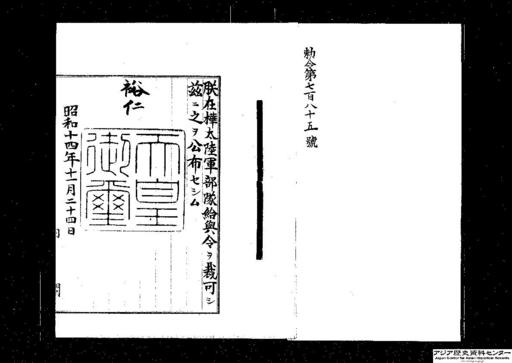 勅令第七百八十五號
朕在樺太陸軍部隊給與令ヲ裁可シ
茲ニ之ヲ公布セシム
裕仁
天皇
御璽
昭和十四年十一月二十四日
内閣
アジア歴史資料センター
Japan Center for Asian Historical Records